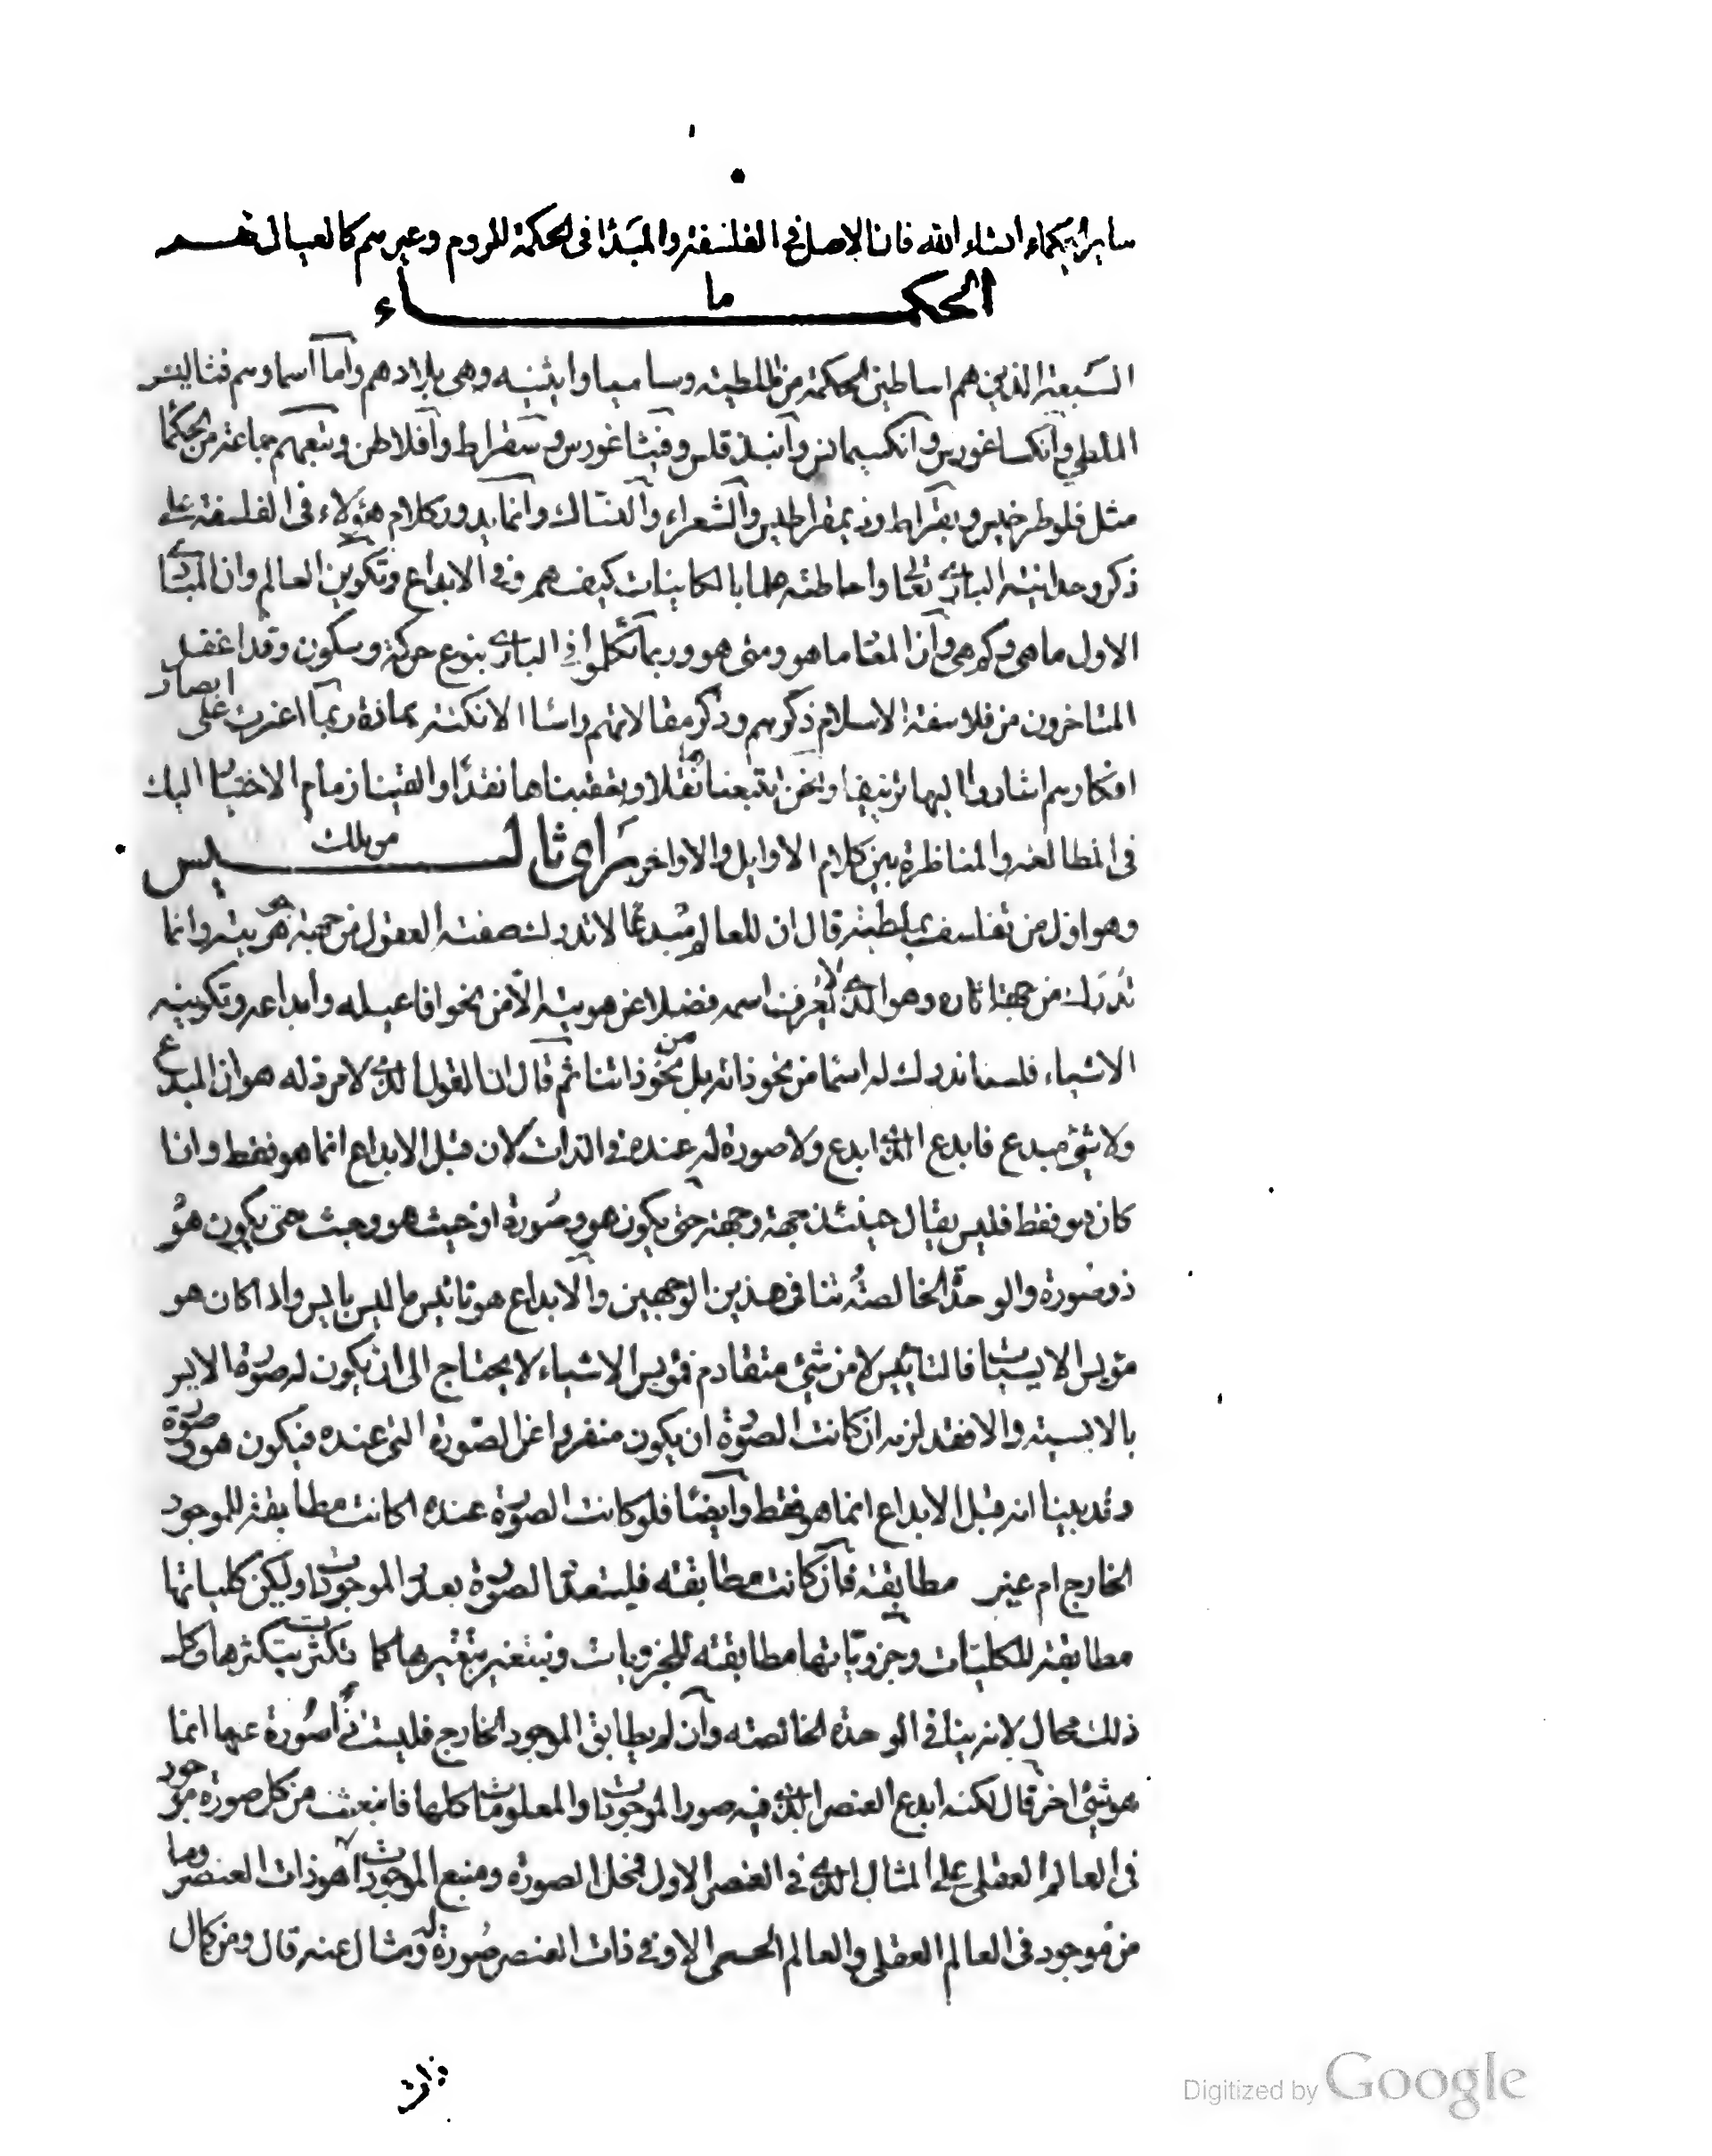 سائر الحكماء ان شاء الله فان الاصل في الفلسفة والمبدأ في الحكمة للروم وغيرهم كالعيال لهم
الحكماء
السبعة الذين هم اساطين الحكمة من ملطية وساميا واثينيه وهى بلادهم واما اسماوهم فثاليس
الملطي وانكساغورس وانكسيمانس وانبذقلس وفيثاغورس وسقراط وافلاطن وتبعهم جماعة من الحكما
مثل فلوطرخيس وبقراط وذيمقراطيس والشعراء والنساك وانما يدور كلام هؤلاء في الفلسفة على
ذكر وحدانية البارئ تعالى واحاطته علما بالكاينات كيف هي وفي الابداع وتكوين العالم وان المبادئ
الاول ما هي وكم هي وان المعاد ما هو ومتى هو وربما تكلموا في البارئ بنوع حركة وسكون وقد اغفل
المتاخرون من فلاسفة الاسلام ذكرهم وذكر مقالاتهم راسا الا نكتة شاذة ربما اعترت على ابصار
افكارهم اشاروا اليها تزييفا ونحن تتبعناها نقلا وتعقبناها نقدا والقينا زمام الاختيار اليك
في المطالعة والمناظرة بين كلام الاوايل والاواخر راى ثاليس
وهو اول من تفلسف بملطية قال ان للعالم مبدعا لا تدرك صفته العقول من جهة هويته وانما
تدرك من جهة اثاره وهو الذي لا يعرف اسمه فضلا عن هويته الا من نحو افاعيله وابداعه وتكوينه
الاشياء فلسنا ندرك له اسما من نحو ذاته بل من نحو ذاتنا ثم قال ان القول الذي لا مرد له هو ان المبدع
ولا شئ مبدع فابدع الذي ابدع ولا صورة له عنده في الذات لان قبل الابداع انما هو فقط واذا
كان هو فقط فليس يقال حينئذ جهة وجهة حتى يكون هو وصورة او حيث هو وحيث حتى يكون هو
ذو صورة والوحدة الخالصة تنافى هذين الوجهين والابداع هو تائيس ما ليس بايس واذا كان هو
مؤيس الايسيات فالتائيس لا من شئ متقادم فمؤيس الاشياء لا يحتاج الى ان يكون له صورة الايس
بالايسية والا فقد لزمه ان كانت الصورة ان يكون منفردا عن الصورة التي عنده فيكون هو وصورة
وقد بينا انه قبل الابداع انما هو فقط وايضا فلو كانت الصورة عنده اكانت مطابقة للموجود
الخارج ام غير مطابقة فان كانت مطابقة فليتعدد الصورة بعدد الموجودات وليكن كلياتها
مطابقة للكليات وجزوياتها مطابقة للجزويات ويتغير بتغيرها كما تكثرت بتكثرها وكل
ذلك محال لانه ينافي الوحدة الخالصة وان لم يطابق الموجود الخارج فليست اذا صورة عنها انما
هو شئ اخر قال لكنه ابدع العنصر الذي فيه صور الموجودات والمعلومات كلها فانبعثت من كل صورة موجود
في العالم العقلي على المثال الذي في العنصر الاول فمحل الصورة ومنبع الموجودات هو ذات العنصر وما
من موجود في العالم العقلي والعالم الحسي الا وفي ذات العنصر صورة له ومثال عنه قال ومن كمال
ذات
Digitized by Google